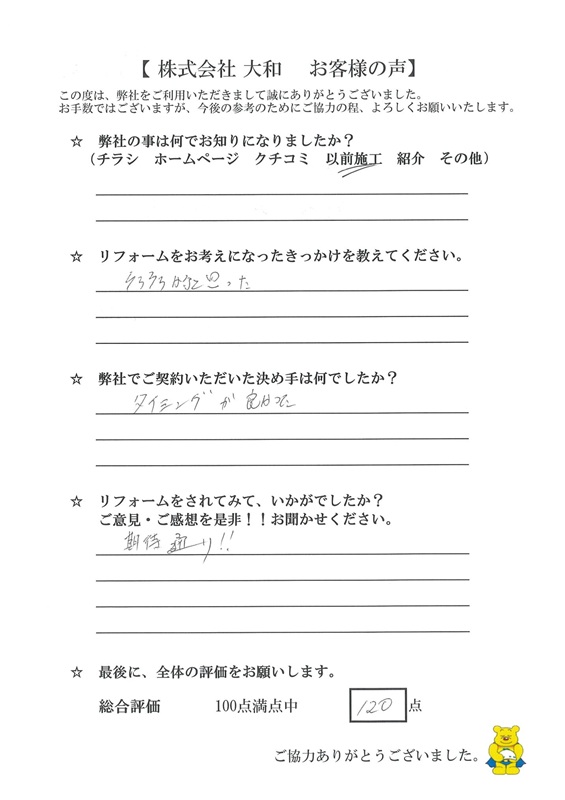 【 株式会社 大和　お客様の声】
この度は、弊社をご利用いただきまして誠にありがとうございました。
お手数ではございますが、今後の参考のためにご協力の程、よろしくお願いいたします。
☆　弊社の事は何でお知りになりましたか？
（チラシ　ホームページ　クチコミ　以前施工　紹介　その他）
☆　リフォームをお考えになったきっかけを教えてください。
そろそろかなと思った
☆　弊社でご契約いただいた決め手は何でしたか？
タイミングが良かった
☆　リフォームをされてみて、いかがでしたか？
ご意見・ご感想を是非！！お聞かせください。
期待通り!!
☆　最後に、全体の評価をお願いします。
総合評価　100点満点中　120 点
ご協力ありがとうございました。